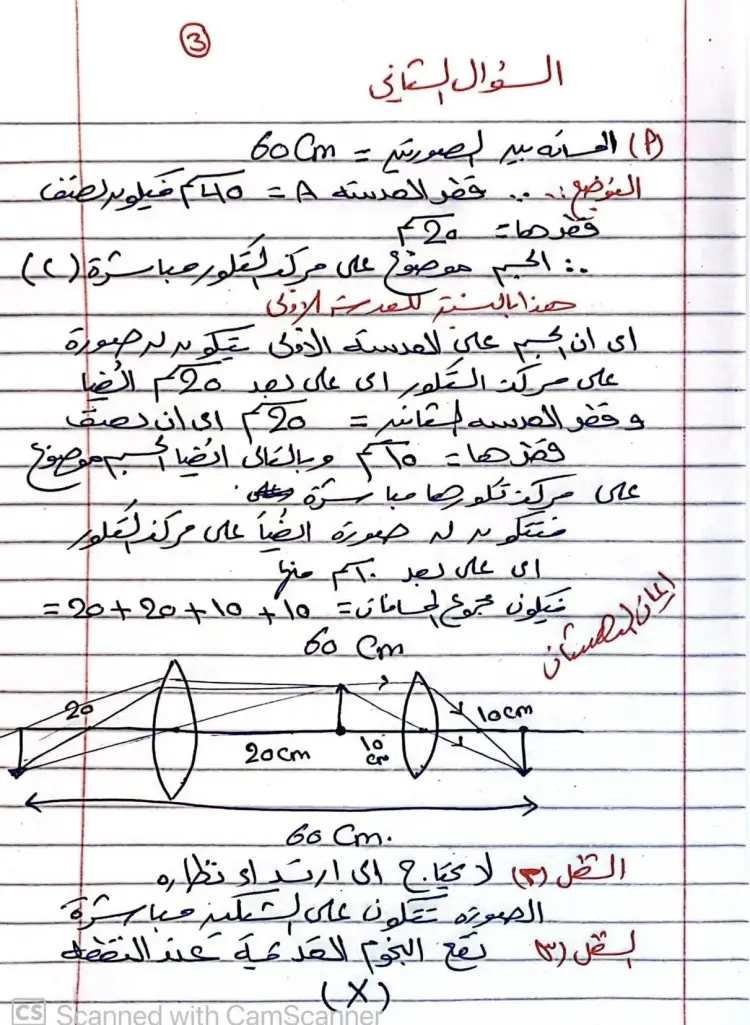 3
السؤال الثاني
(A) المسافة بين الصورتين = 60 Cm
التوضيح: ∵ قطر العدسة A = 40 سم فيكون نصف
قطرها = 20 سم
∴ الجسم موضوع على مركز التكور مباشرة (C)
هذا بالنسبة للعدسة الأولى
اى ان الجسم على العدسة الأولى يتكون له صورة
على مركز التكور اى على بعد 20 سم ايضا
و قطر العدسة الثانية = 20 سم اى ان نصف
قطرها = 10 سم وبالتالى ايضا الجسم موضوع
على مركز تكورها مباشرة
فتتكون له صورة ايضاً على مركز التكور
اى على بعد 10 سم منها
فيكون مجموع المسافات = 10 + 10 + 20 + 20 =
60 Cm
20
20cm
10 cm
10cm
60 Cm.
الشكل (٢) لا يحتاج الى ارتداء نظاره
الصورة تتكون على الشبكية مباشرة
الشكل (٣) تقع النجوم القديمة عند النقطة
(X)
CS Scanned with CamScanner